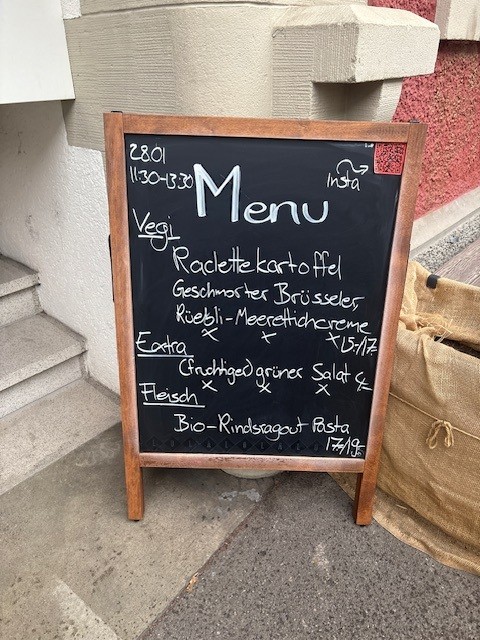 28.01
11:30-13:30
Menu
Insta
Vegi
Raclettekartoffel
Geschmorter Brüsseler,
Rüebli-Meerettichcreme
x x x 15.-/17.-
Extra
(fruchtiger) grüner Salat 4.-
x x x
Fleisch
Bio-Rindsragout Pasta
17.-/19.-